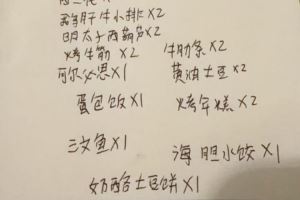 酪肝牛小排X2
明太子西葫芦X2
烤牛筋 X2 牛肋条X2
可尔必思X1 黄油土豆X2
蛋包饭X1 烤年糕X2
三文鱼X1 海胆水饺X1
奶酪土豆饼X1